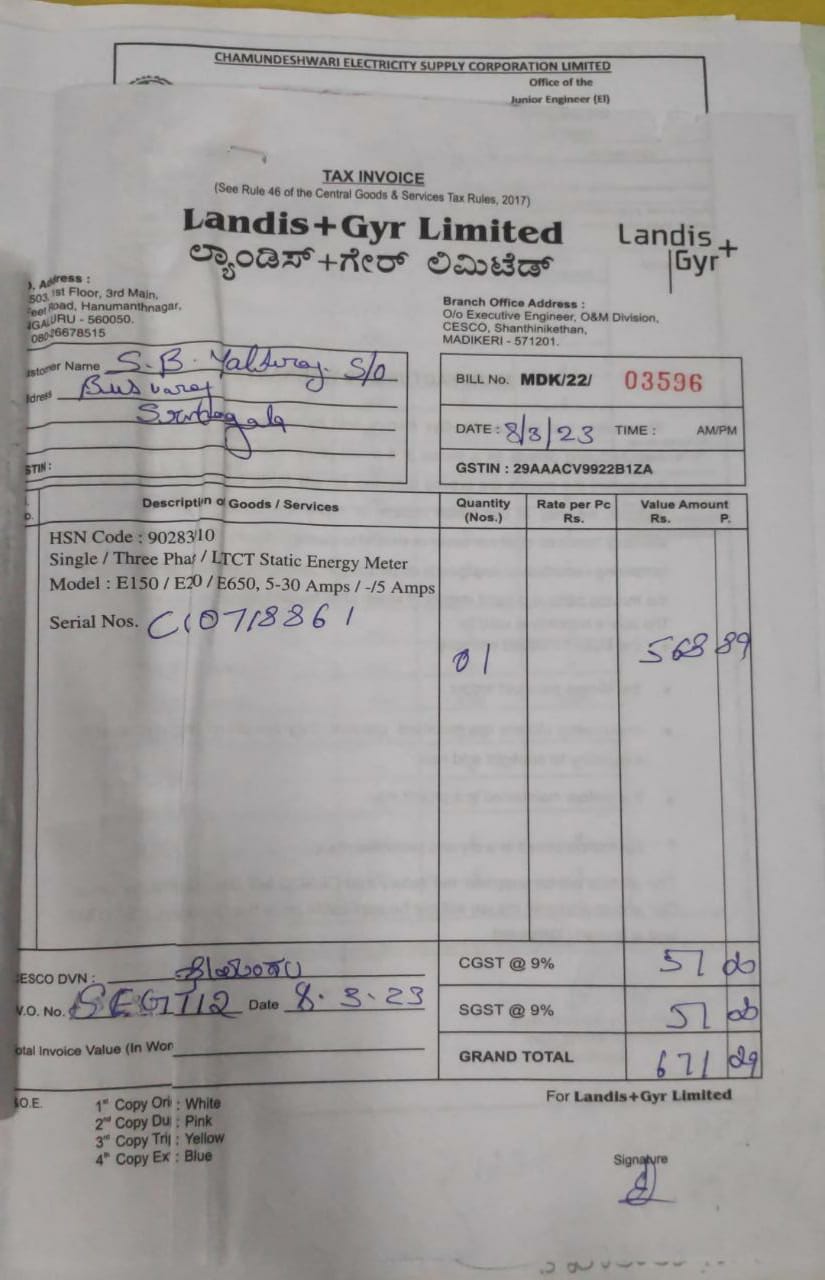 CHAMUNDESHWARI ELECTRICITY SUPPLY CORPORATION LIMITED
Office of the
Junior Engineer (El)
TAX INVOICE
(See Rule 46 of the Central Goods & Services Tax Rules, 2017)
Landis+Gyr Limited
ಲ್ಯಾಂಡಿಸ್+ಗೇರ್ ಲಿಮಿಟೆಡ್
Landis+
Gyr
Address :
503, 1st Floor, 3rd Main,
Road, Hanumanthnagar,
URU - 560050.
26678515
Branch Office Address :
O/o Executive Engineer, O&M Division,
CESCO, Shanthinikethan,
MADIKERI - 571201.
Name S.B. S/o
BILL No. MDK/22/ 03596
DATE : 8/3/23 TIME : AM/PM
GSTIN : 29AAACV9922B1ZA
Description of Goods / Services Quantity (Nos.) Rate per Pc Rs. Value Amount Rs. P.
HSN Code : 90283310
Single / Three Pha / LTCT Static Energy Meter
Model : E150 / E20 / E650, 5-30 Amps / -/5 Amps
Serial Nos.
01 568 89
DVN :
CGST @ 9% 51
No. Date 8.3.23
SGST @ 9% 51
Invoice Value (In Wor
GRAND TOTAL 671 29
O.E.
1st Copy Ori : White
2nd Copy Du : Pink
3rd Copy Trip : Yellow
4th Copy Ex : Blue
For Landis+Gyr Limited
Signature